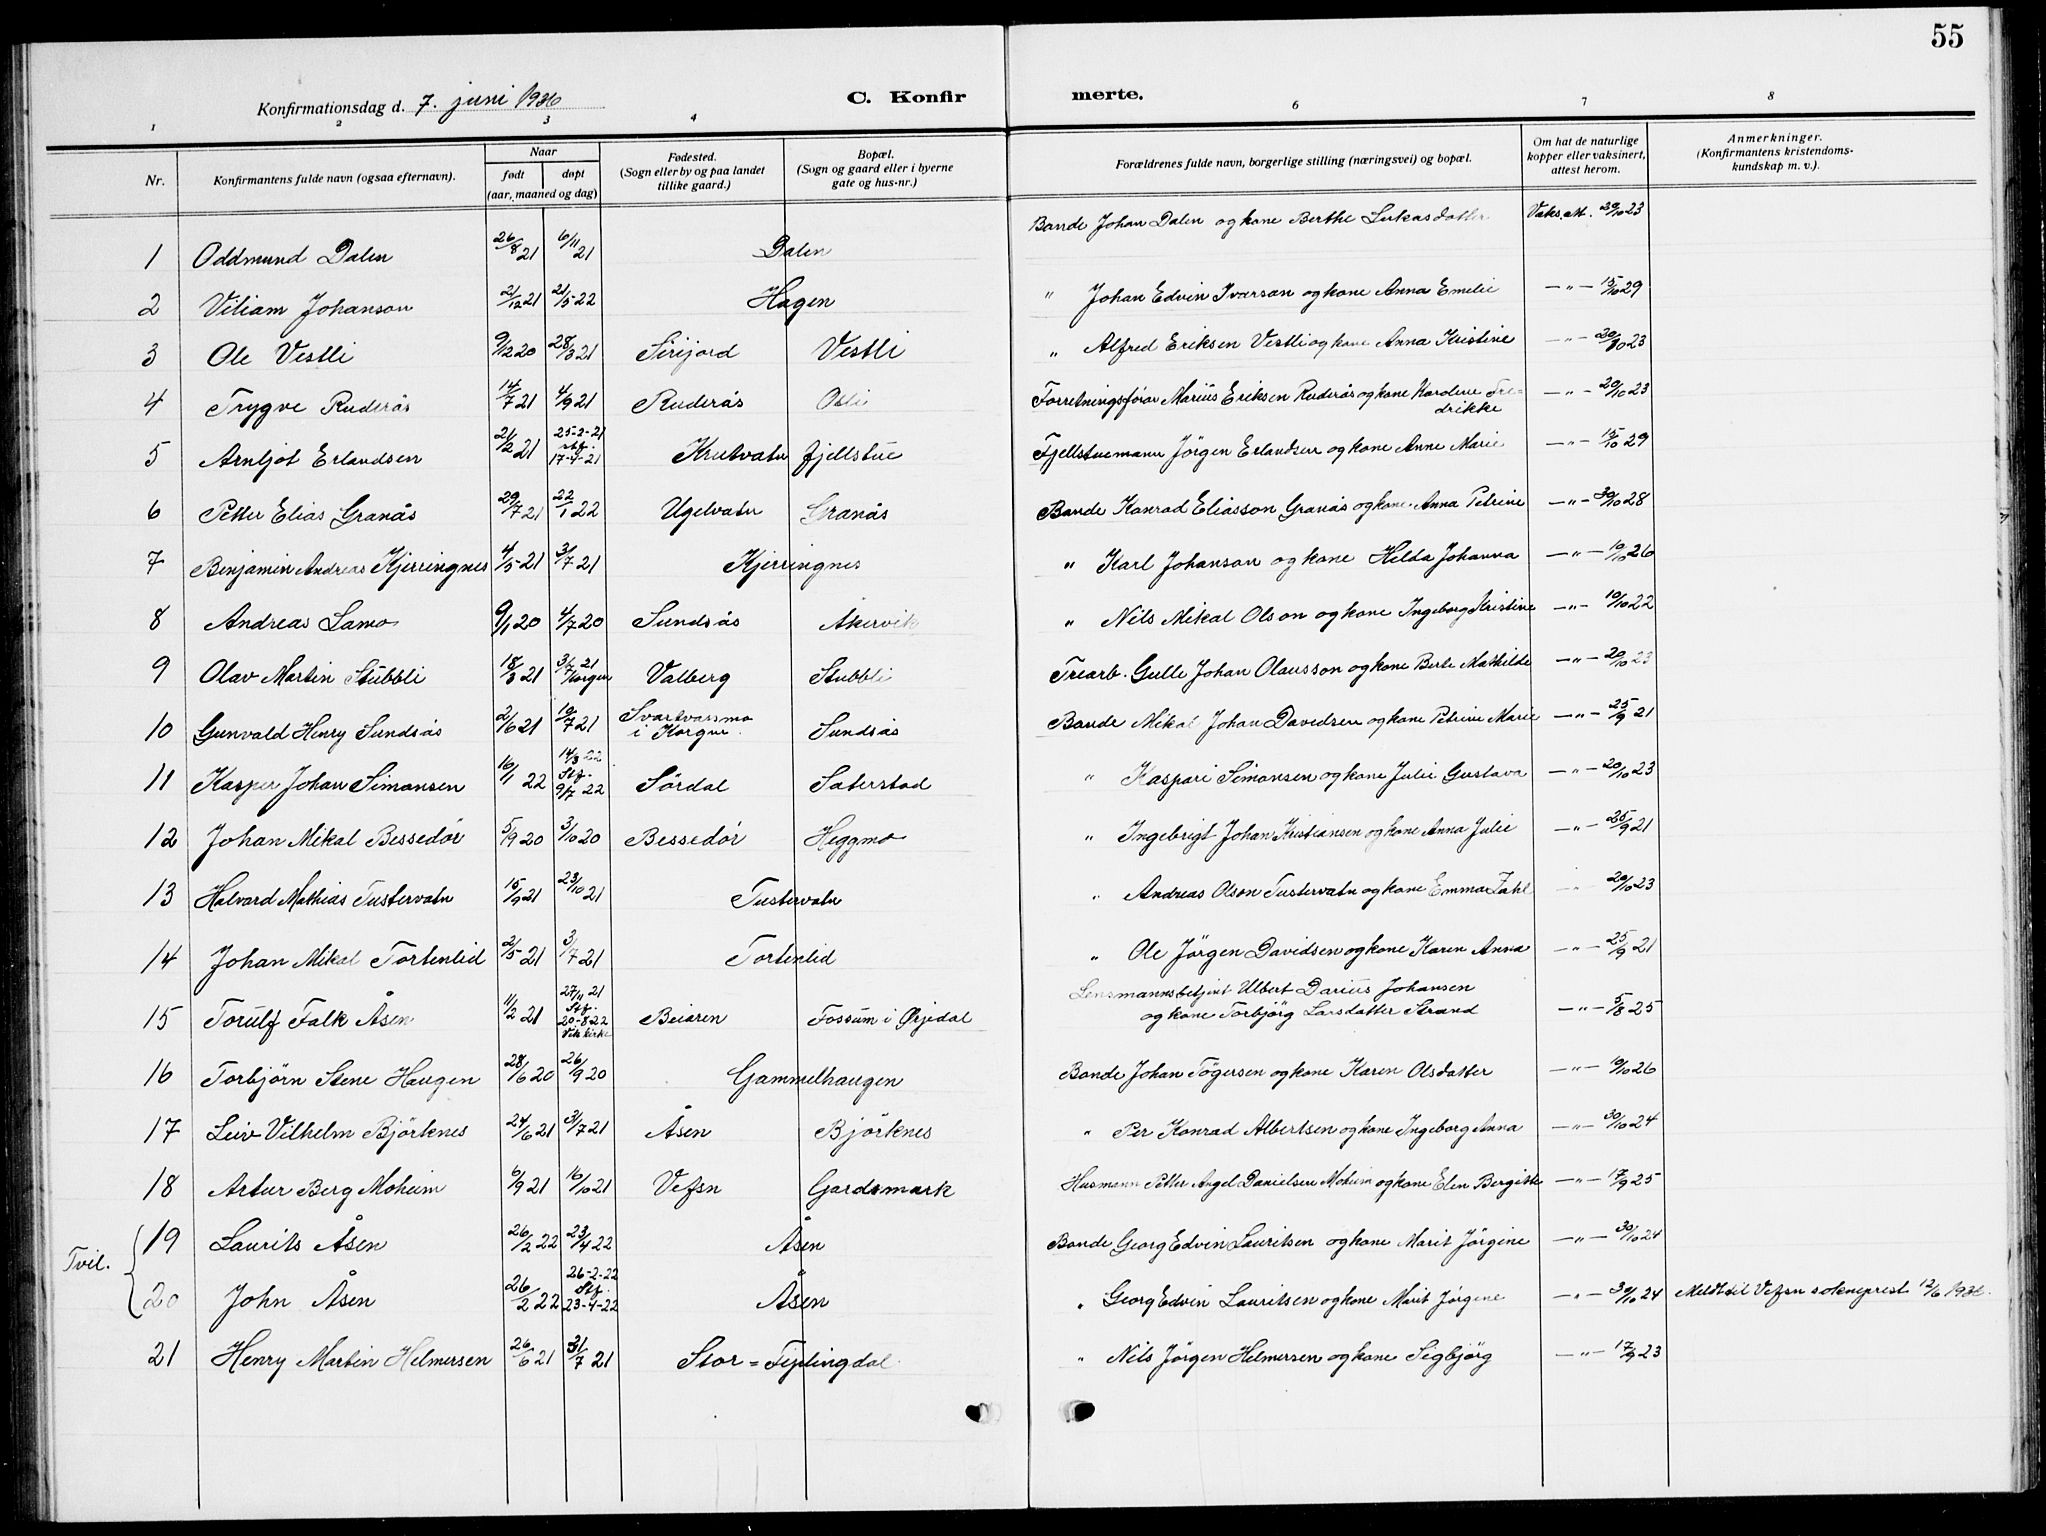 55
Konfirmationsdag d. 7. juni 1936 C. Konfirmerte.
1 2 3 4 6 7 8
Nr. Konfirmantens fulde navn (ogsaa efternavn). Naar født døpt (aar, maaned og dag) Fødested. (Sogn eller by og paa landet tillike gaard.) Bopæl. (Sogn og gaard eller i byerne gate og hus-nr.) Forældrenes fulde navn, borgerlige stilling (næringsvei) og bopæl. Om hat de naturlige kopper eller vaksinert, attest herom. Anmerkninger. (Konfirmantens kristendoms-kundskap m. v.).
1 Oddmund Dalen 26/8 21 6/11 21 Dalen Bonde Johan Dalen og kone Berthe Lukasdatter Vaks.att. 20/10 23
2 Viliam Johanson 2/12 21 21/5-22 Hagen " Johan Edvin Ivarson og kone Anna Emelie —"— 15/10 29
3 Ole Vestli 9/12 20 28/3 21 Sirijord Vestli " Alfred Eriksen Vestli og kone Anna Kristine —"— 20/10 23
4 Trygve Ruderås 14/7 21 4/9 21 Ruderås Osli Forretningsförar Marius Eriksen Ruderås og kone Karoline Fredrikke —"— 20/10 23
5 Arnljot Erlandsen 21/2 21 25-2-21 stf. 17-4-21 Krutvatn fjellstue Fjellstuemann Jörgen Erlandsen og kone Anne Marie —"— 15/10 29
6 Petter Elias Granås 29/7 21 22/1 22 Ugelvatn Granås Bonde Konrad Eliasson Granås og kone Anna Petrine —"— 30/10 28
7 Benjamin Andreas Kjerringnes 4/5-21 3/7 21 Kjerringnes " Karl Johanson og kone Hilda Johanna —"— 10/10 26
8 Andreas Lamo 9/1 20 4/7 20 Sundsås Åkervik " Nils Mikal Olson og kone Ingeborg Kristine —"— 10/10 22
9 Olav Martin Stubbli 18/3 21 3/7 21 Korgen Valberg Stubbli Trearb. Gulle Johan Olausson og kone Berle Mathilde —"— 20/10 23
10 Gunvald Henry Sundsås 2/6 21 10/7 21 Svartvassmo i Korgen Sundsås Bonde Mikal Johan Davidsen og kone Petrine Marie —"— 25/9 21
11 Kasper Johan Simonsen 16/1 22 14/3 22 Stf. 9/7 22 Sördal Saterstad " Kaspari Simonsen og kone Julie Gustava —"— 20/10 23
12 Johan Mikal Bessedör 5/9 20 3/10 20 Bessedör Heggmo " Ingebrigt Johan Kristiansen og kone Anna Julie —"— 25/9 21
13 Halvard Mathias Tustervatn 15/9 21 23/10 21 Tustervatn " Andreas Olson Tustervatn og kone Emma Zahl 20/10 23
14 Johan Mikal Tortenlid 2/5 21 3/7 21 Tortenlid " Ole Jörgen Davidsen og kone Karen Anna —"— 25/9 21
15 Torulf Falk Åsen 11/2 21 27/11 21 Stf. 20-8-22 Vik kirke Beiaren Fossum i Ørjedal Lensmannsbetjent Ulbert Darius Johansen og kone Torbjörg Larsdatter Strand —"— 5/8 25
16 Torbjörn Stene Haugen 28/6 20 26/9 20 Gammelhaugen Bonde Johan Tögersen og kone Karen Olsdatter —"— 10/10 26
17 Leiv Vilhelm Björknes 24/6 21 3/7 21 Åsen Björknes " Per Konrad Albertsen og kone Ingeborg Anna —"— 30/10 24
18 Artur Berg Moheim 6/9 21 16/10 21 Vefsn Gardsmark Husmann Petter Angel Danielsen Moheim og kone Elen Bergitte —"— 17/9 25
Tvil. 19 Laurits Åsen 26/2 22 23/4 22 Åsen Bonde Georg Edvin Lauritsen og kone Marit Jörgine —"— 30/10 24
20 John Åsen 26/2 22 26-2-22 Stf. 23-4-22 Åsen " Georg Edvin Lauritsen og kone Marit Jörgine —"— 30/10 24 Meldt til Vefsn sokneprest 12/6 1936.
21 Henry Martin Helmersen 26/6 21 31/7 21 Stor=Fiplingdal. " Nils Jörgen Helmersen og kone Sigbjörg —"— 17/9 23